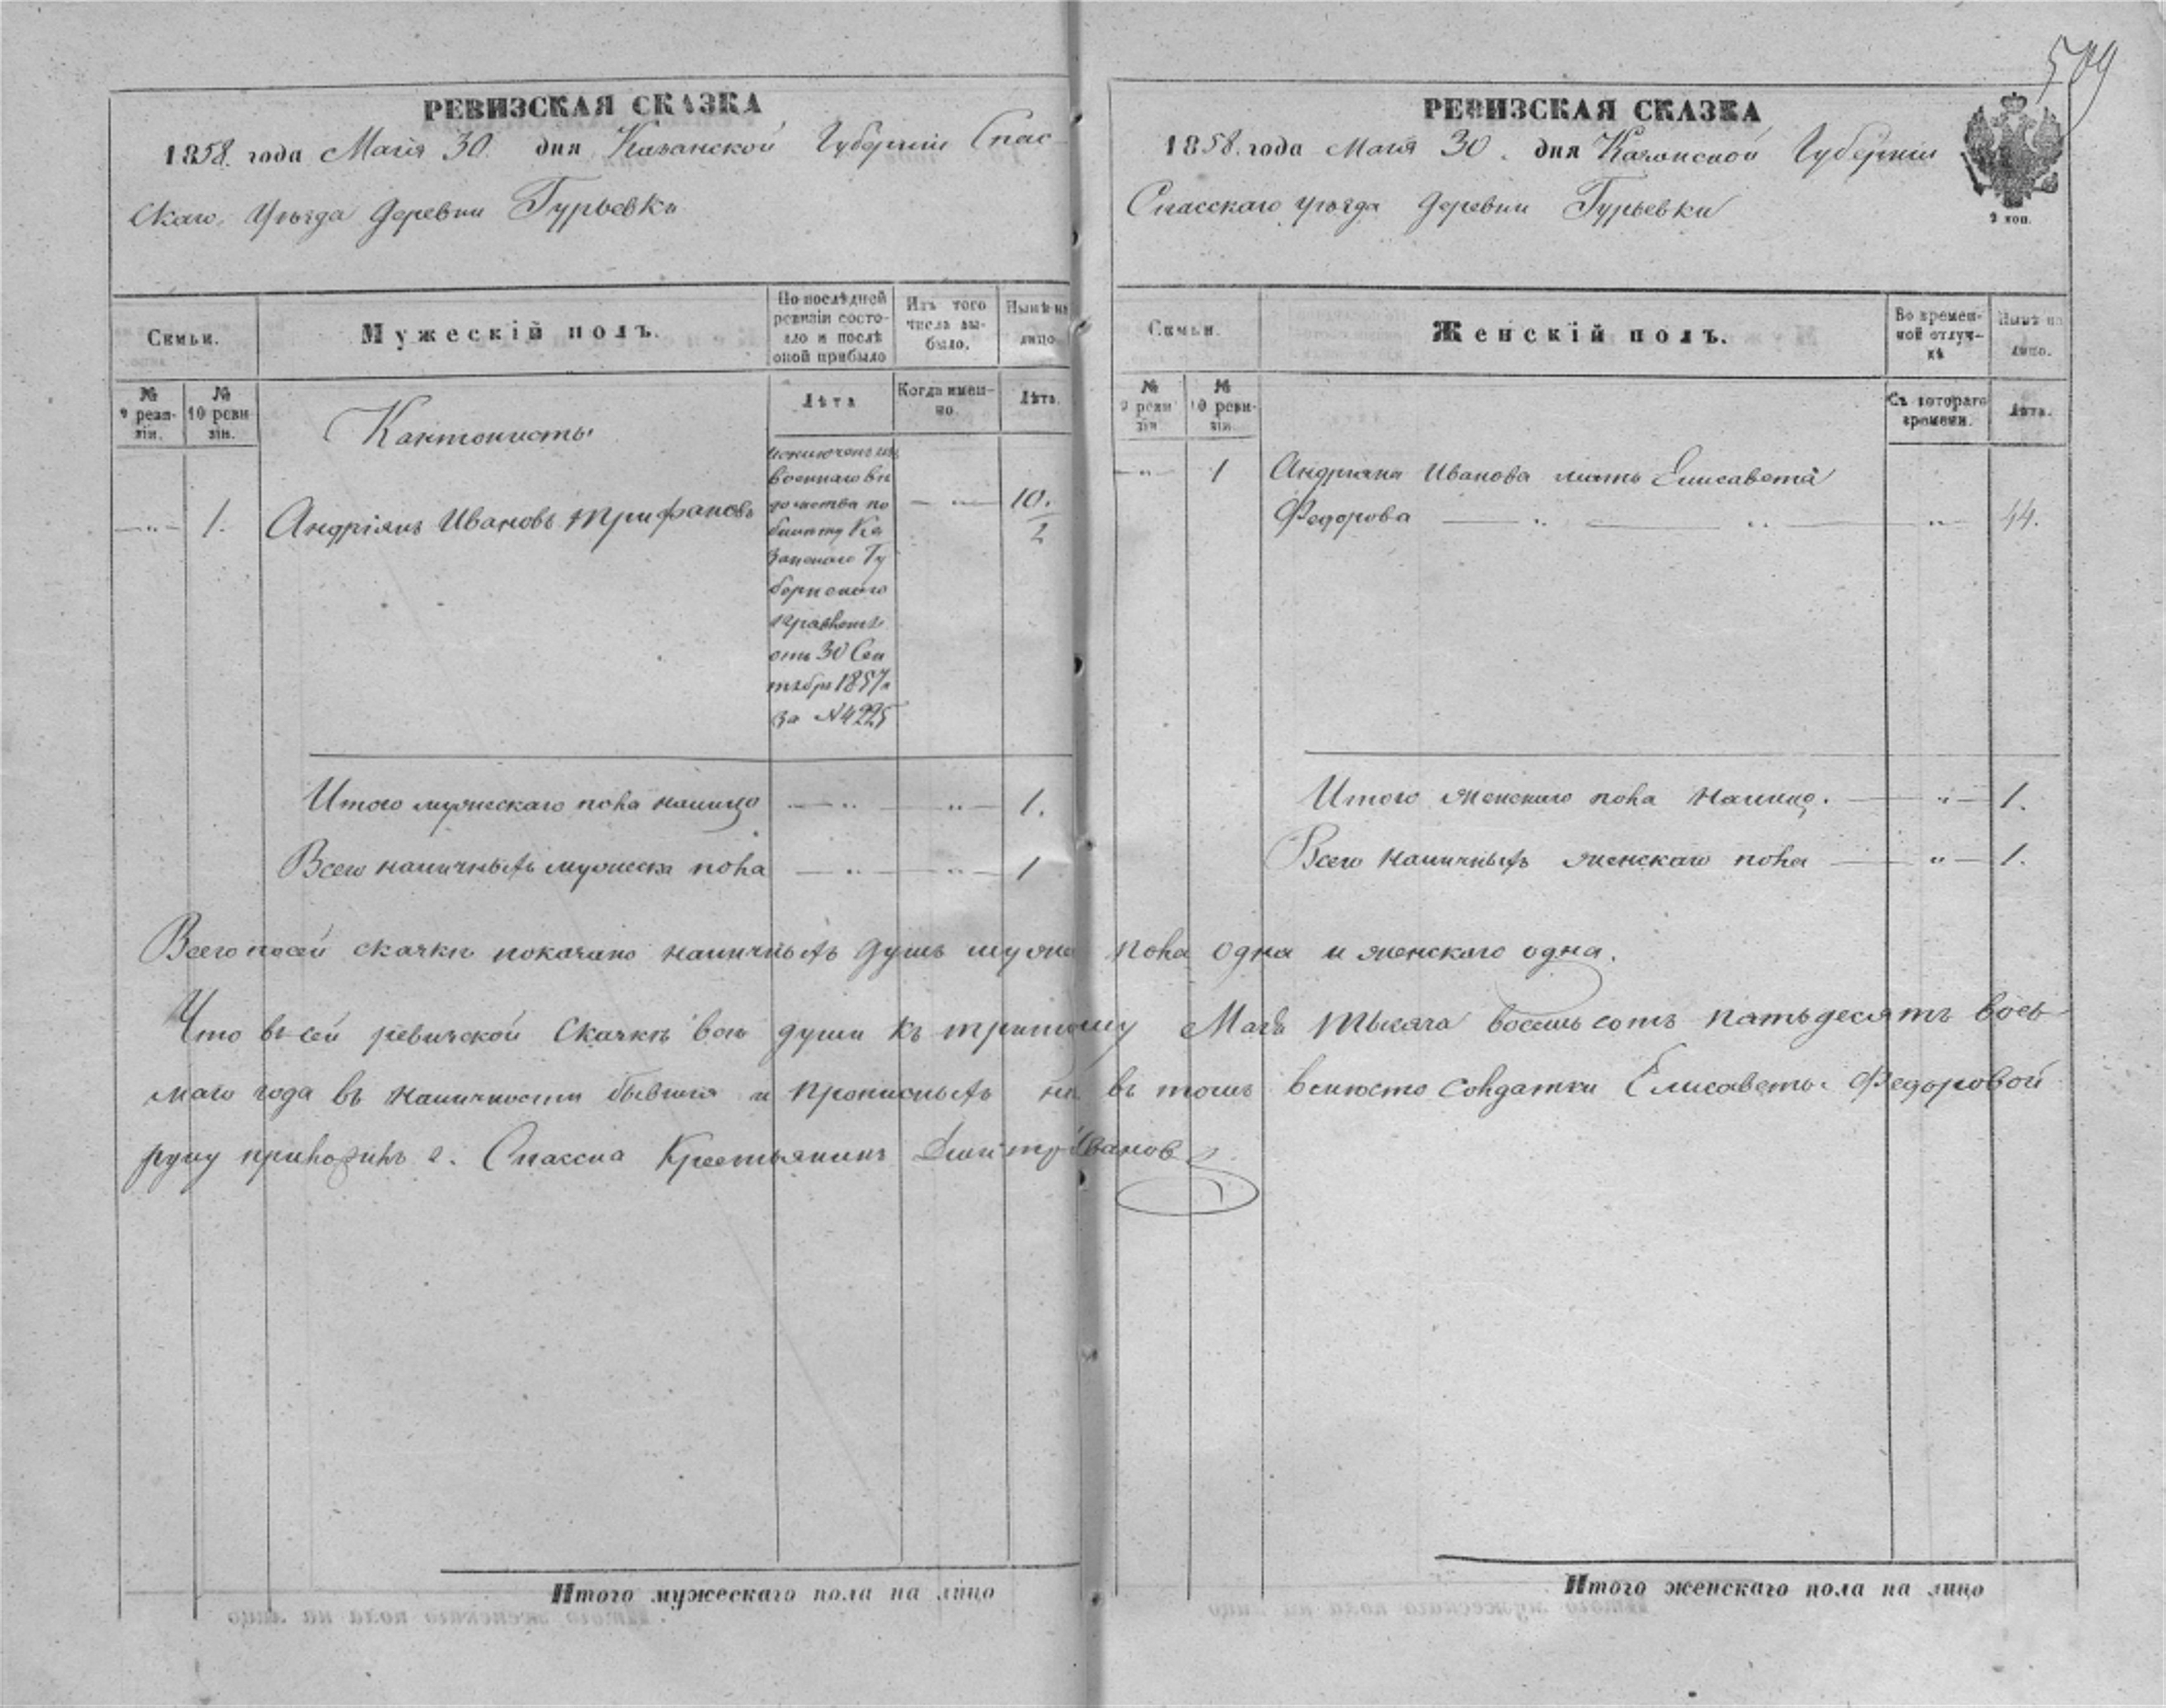 509
РЕВИЗСКАЯ СКАЗКА
1858. года Маія 30. дня Казанской Губерніи Спас
скаго Уѣзда деревни Гурьевки
Семьи.
Мужескій полъ.
По послѣдней ревизіи состояло и послѣ оной прибыло
Изъ того числа выбыло.
Нынѣ на лицо
№ 9 ревизіи.
№ 10 ревизіи.
Лѣта
Когда именно.
Лѣта.
Кантонисты
исключенъ изъ
военнаго вѣ
домства по
билету Ка
занскаго Гу
бернскаго
правленія
отъ 30 Сен
тября 1857 г
за №4225
— „ — 1. Андріянъ Ивановъ Трифановъ — „ — 10. 1/2
Итого мужескаго пола налицо — „ — „ — 1.
Всего наличныхъ мужеска пола — „ — „ — 1
РЕВИЗСКАЯ СКАЗКА
1858. года Маія 30. дня Казанской Губерніи
Спасскаго уѣзда деревни Гурьевки
2 коп.
Семьи.
Женскій полъ.
Во временной отлучкѣ
Нынѣ на лицо.
№ 9 ревизіи
№ 10 ревизіи
Съ котораго времени.
Лѣта.
— „ — 1 Андріяна Иванова мать Елисавета
Федорова — „ — „ — „ — 44.
Итого женскаго пола налицо. — „ — 1.
Всего наличныхъ женскаго пола — „ — 1.
Всего посей сказки показано наличныхъ душъ мужска пола одна и женскаго одна.
Что въ сей ревизской Сказкѣ всѣ души къ третьему Маія тысяча восемь сотъ пятьдесятъ вось
маго года въ наличности бывшія и прописныхъ нѣтъ въ томъ вмѣсто Солдатки Елисаветы Федоровой
руку приложилъ г. Спасска Крестьянинъ Дмитр Иванов
Итого мужескаго пола на лицо
Итого женскаго пола на лицо